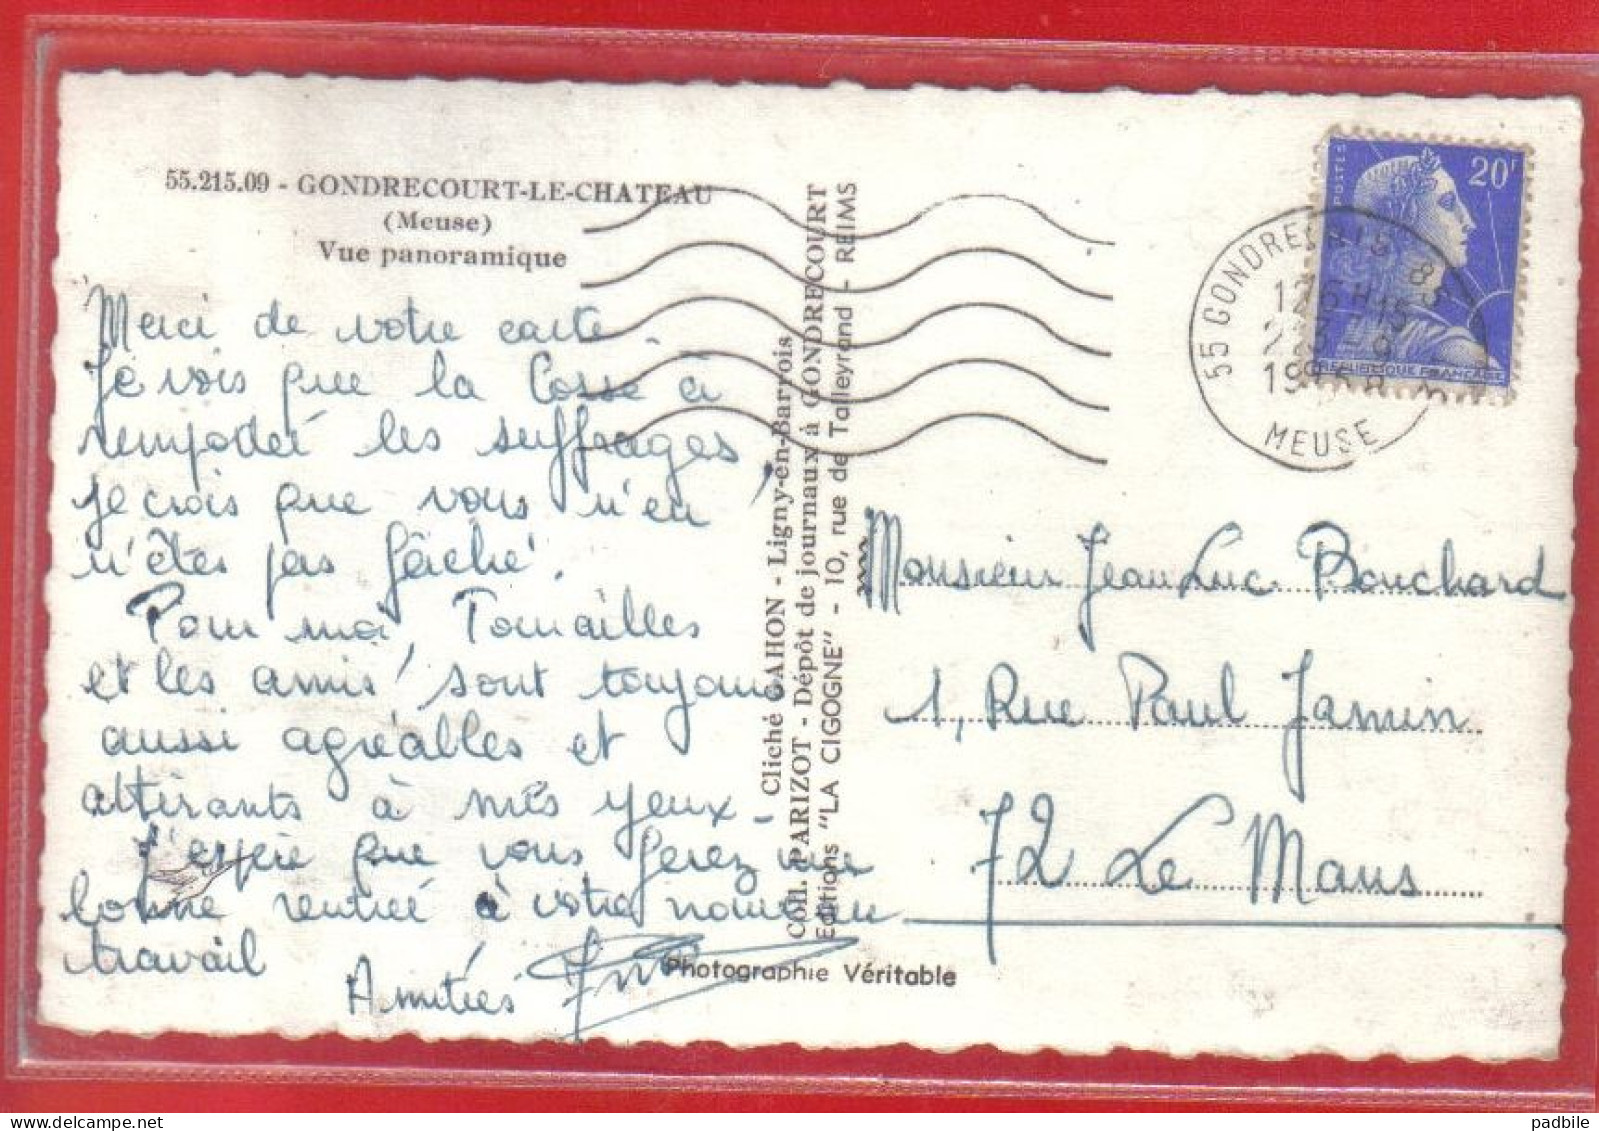 55.215.09 - GONDRECOURT-LE-CHATEAU
(Meuse)
Vue panoramique
Merci de votre carte.
Je vois que la Corse a
remporté les suffrages,
je crois que vous n'en
n'êtes pas fâché.
Pour moi, Tournailles
et les amis, sont toujours
aussi agréables et
attirants à mes yeux.
J'espère que vous ferez une
bonne rentrée à votre nouveau
travail
Amitiés
Cliché CAHON - Ligny-en-Barrois
Coll. PARIZOT - Dépôt de journaux à GONDRECOURT
Editions "LA CIGOGNE" - 10, rue de Talleyrand - REIMS
Photographie Véritable
POSTES
20F
REPUBLIQUE FRANÇAISE
55 GONDREC
MEUSE
Monsieur Jean Luc Bouchard
1, Rue Paul Jamin
72 Le Mans
padbile